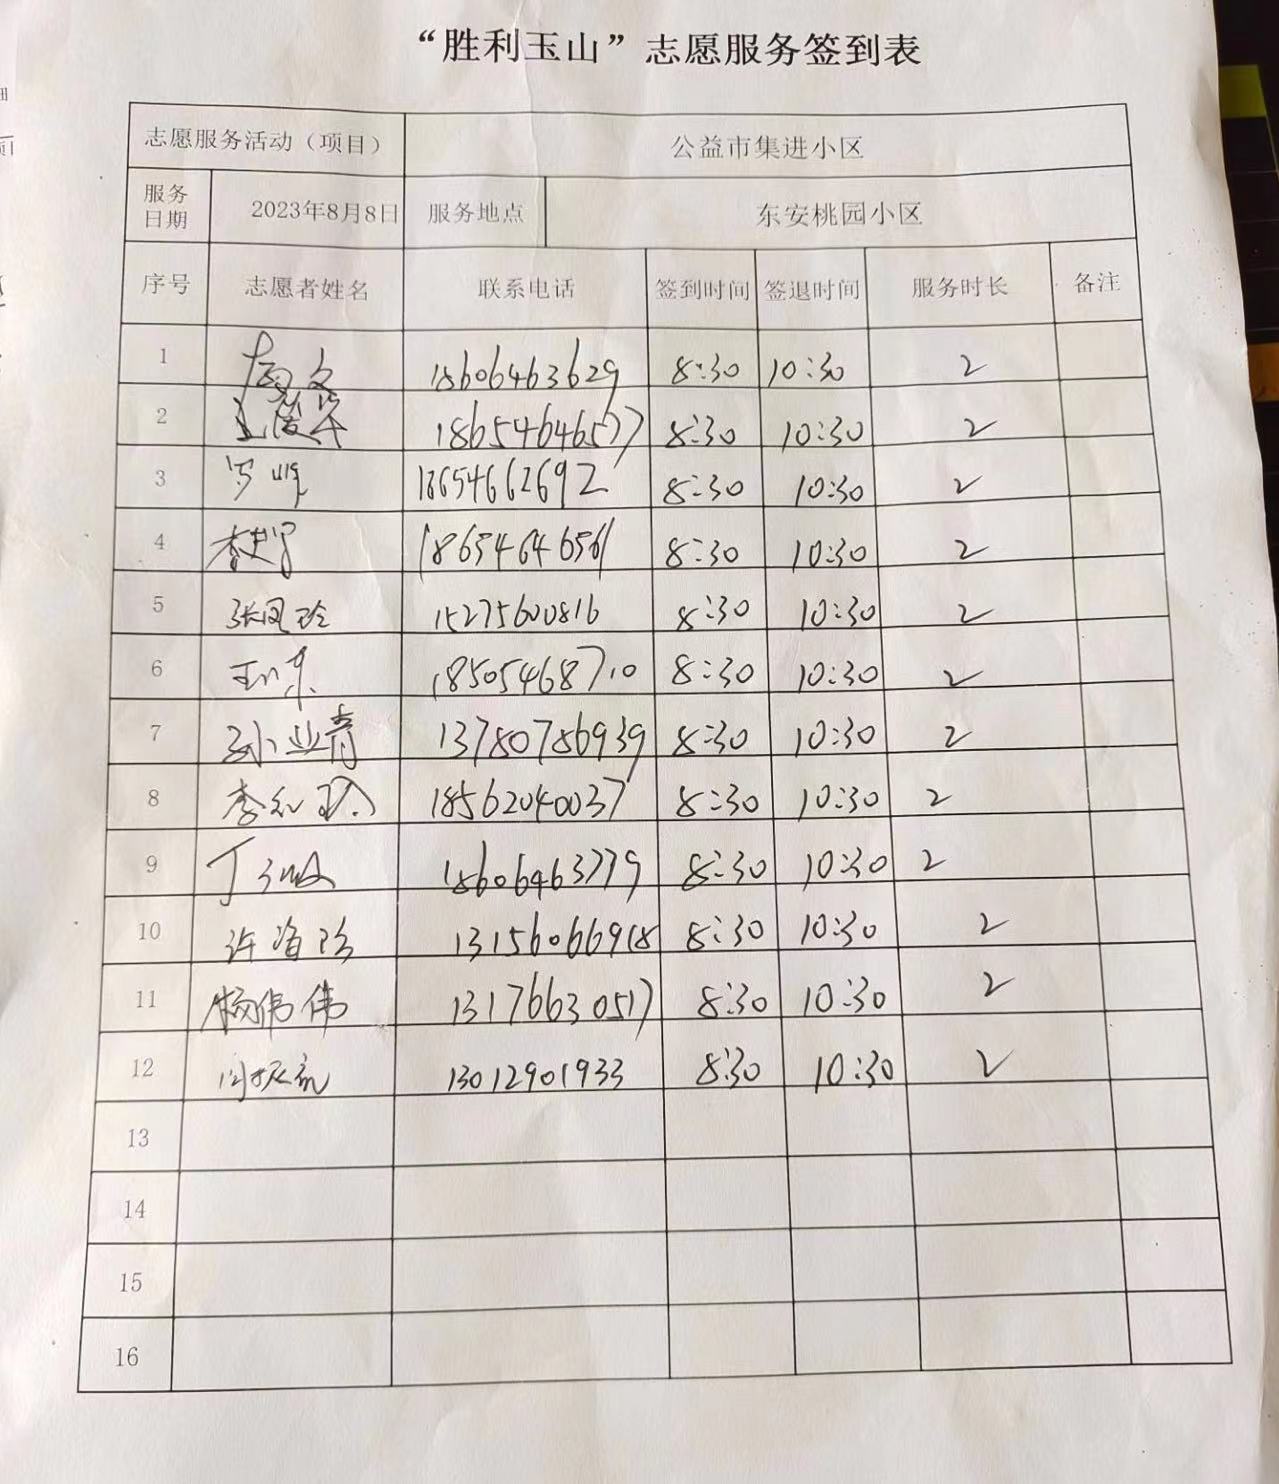 “胜利玉山”志愿服务签到表
志愿服务活动（项目） 公益市集进小区
服务日期 2023年8月8日 服务地点 东安桃园小区
序号 志愿者姓名 联系电话 签到时间 签退时间 服务时长 备注
1 18606463629 8:30 10:30 2
2 18654646577 8:30 10:30 2
3 18654662692 8:30 10:30 2
4 18654646561 8:30 10:30 2
5 张凤玲 15275600816 8:30 10:30 2
6 18505468710 8:30 10:30 2
7 孙业青 13780786939 8:30 10:30 2
8 18562040037 8:30 10:30 2
9 18606463779 8:30 10:30 2
10 许海珍 13156066918 8:30 10:30 2
11 杨伟伟 13176630517 8:30 10:30 2
12 13012901933 8:30 10:30 2
13
14
15
16